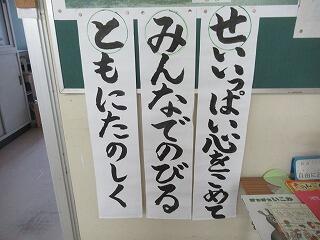 せいいっぱい心をこめて
みんなでのびる
ともにたのしく